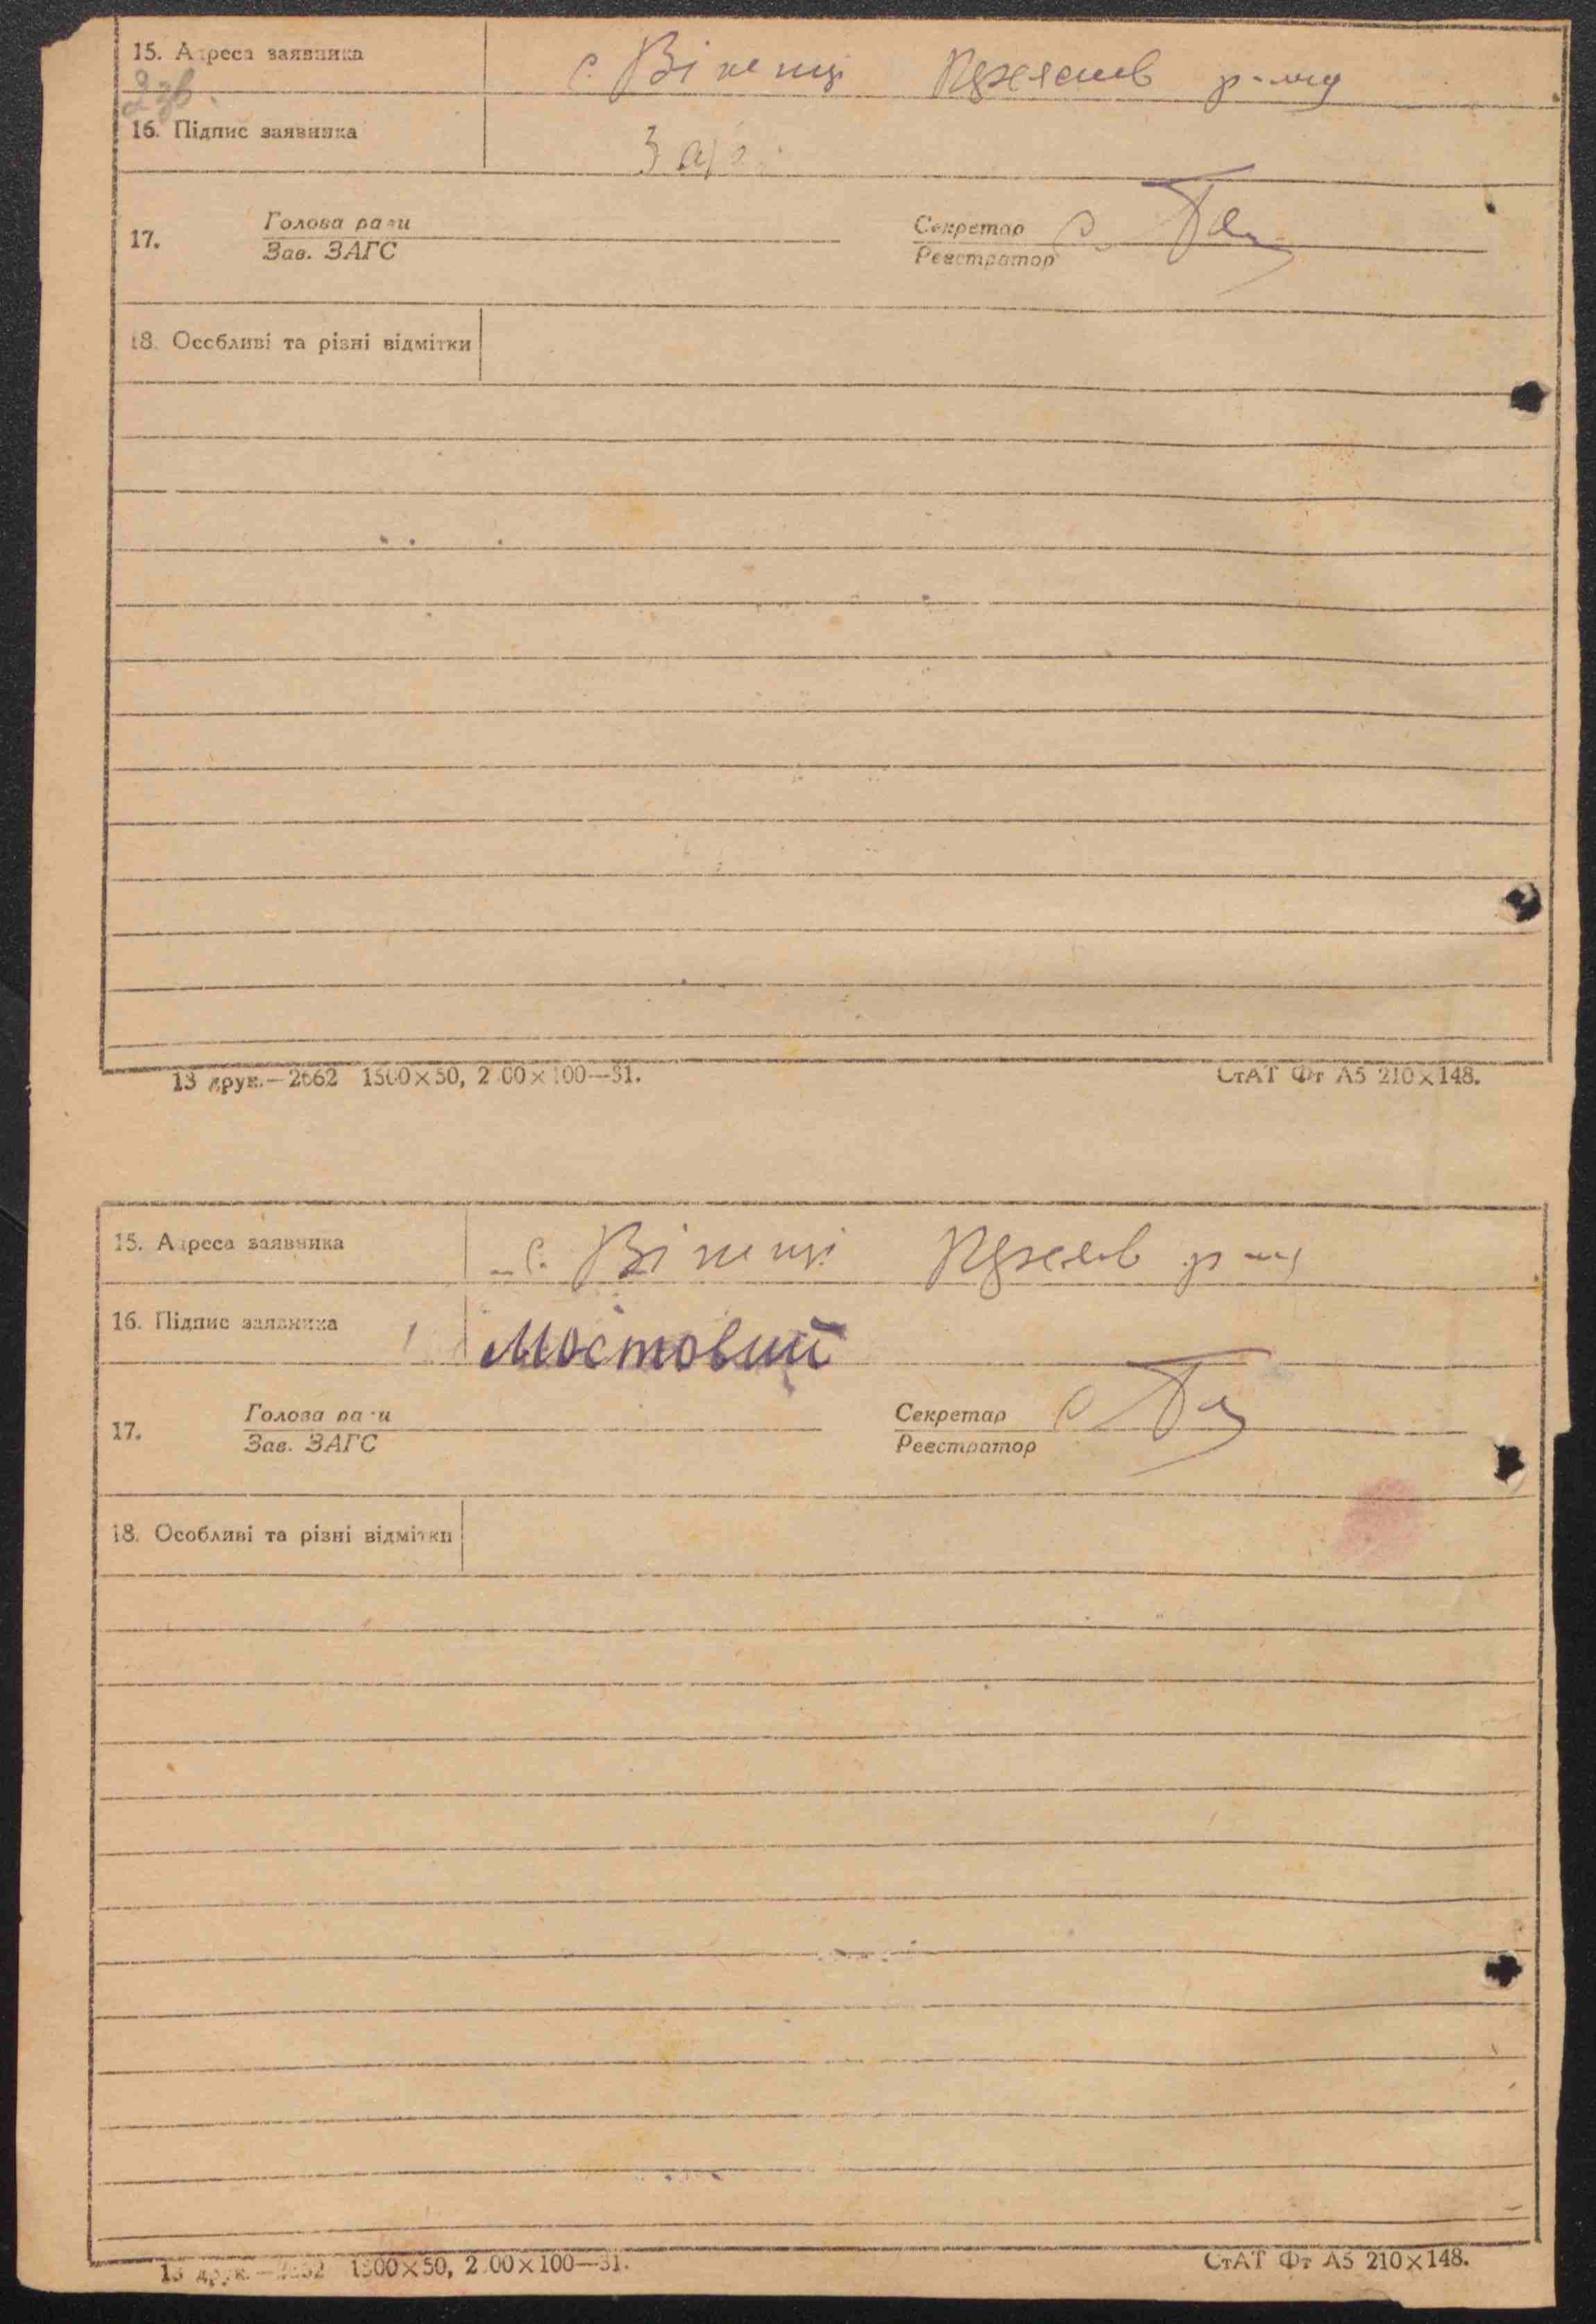 15. Адреса заявника с. Вінниці р-ну
2зв.
16. Підпис заявника
17. Голова ради Секретар
Зав. ЗАГС Реєстратор
18. Особливі та різні відмітки
13 друк.—2662 1500×50, 2.00×100—31. СтАТ Фт А5 210×148.
15. Адреса заявника с. р-ну
16. Підпис заявника Мостовий
17. Голова ради Секретар
Зав. ЗАГС Реєстратор
18. Особливі та різні відмітки
13 друк.—2662 1500×50, 2.00×100—31. СтАТ Фт А5 210×148.